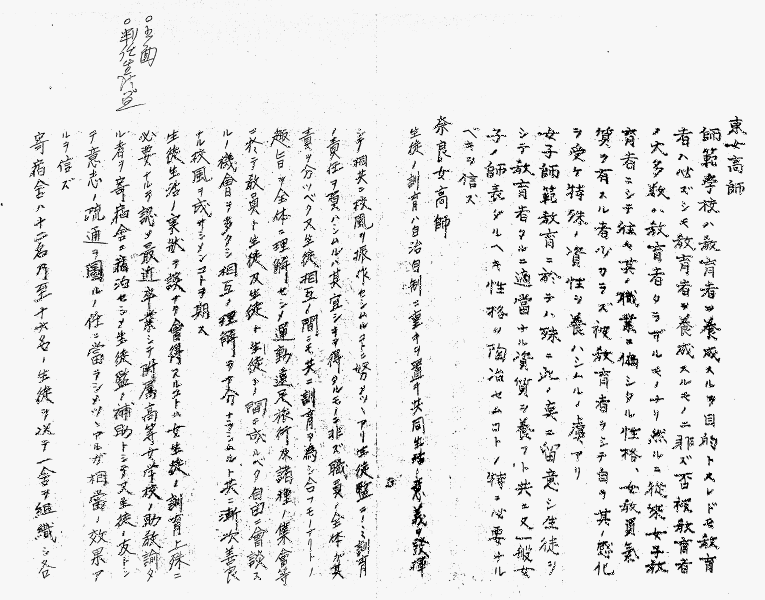 東女高師
師範學校ハ教育者ヲ養成スルヲ目的トスレドモ教育
者ハ必ズシモ教育者ヲ養成スルモノニ非ズ否被教育者
ノ大多数ハ教育者タラザルモノナリ然ルニ從來女子教
育者ニシテ往々其ノ職業ニ偏シタル性格、女教員氣
質ヲ有スル者少カラズ被教育者ヲシテ自ラ其ノ感化
ヲ受ケ特殊ノ資性ヲ養ハシムルノ虞アリ
女子師範教育ニ於テハ殊ニ此ノ奌ニ留意シ生徒ヲ
シテ教育者タルニ適當ナル資質ヲ養フト共ニ又一般女
子ノ師表タルベキ性格ヲ陶冶セムコト特ニ必要ナル
ベキヲ信ズ
奈良女高師
生徒ノ訓育ハ自治自制ニ重キヲ置キ共同生活ノ意義ヲ發揮
シテ相共ニ校風ヲ振作センムルコトニ努メツヽアリ生徒監ニノミ訓育
ノ責任ヲ負ハシムルハ其宜シキヲ得タルモノニ非ズ職員ノ全体ガ其
責ヲ分ツベク又生徒相互ノ間ニモ共ニ訓育ヲ為シ合フモノナリトノ
趣旨ヲ全体ニ理解セシメ運動遠足旅行及諸種ノ集會等
ニ於テ教員ト生徒及生徒ト生徒トノ間ニ成ルベク自由ニ會談ス
ルノ機會ヲ多クシ相互ノ理解ヲ十分ナラシムルト共ニ漸次善良
ナル校風ヲ成サシメンコトヲ期ス
生徒生活ノ実状ヲ談ナク會得スルコトハ女生徒ノ訓育上殊ニ
必要ナルヲ認メ最近卒業シテ附属高等女学校ノ助教諭タ
ル者ヲ寄宿舎ニ宿泊セシメ生徒監ノ補助トシテ又生徒ノ友トシ
テ意志ノ疏通ヲ圖ルノ任ニ當ラシメツヽアルガ相當ノ效果ア
ルヲ信ズ
寄宿舎ハ十二名乃至十六名ノ生徒ヲ以テ一舎ヲ組織シ各